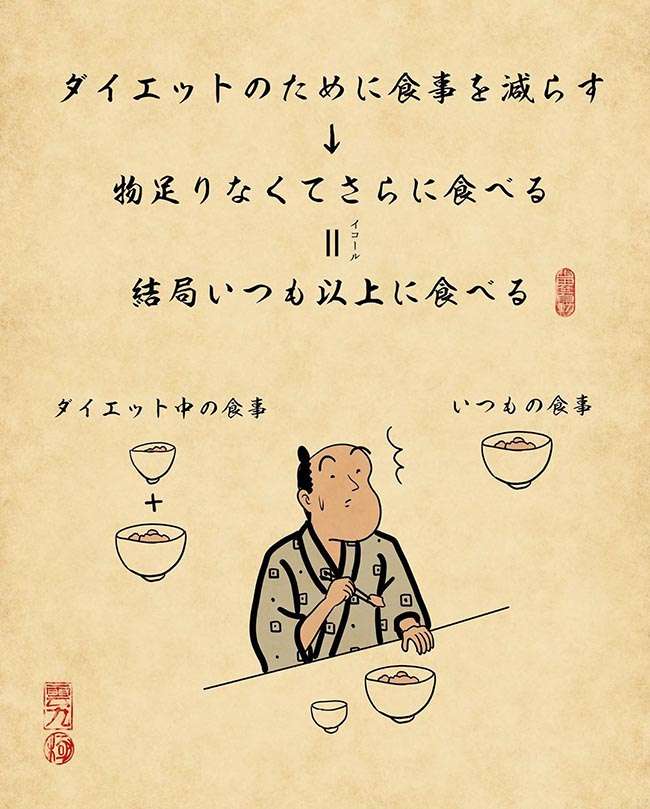 ダイエットのために食事を減らす
↓
物足りなくてさらに食べる
＝
イコール
結局いつも以上に食べる
ダイエット中の食事
いつもの食事
+